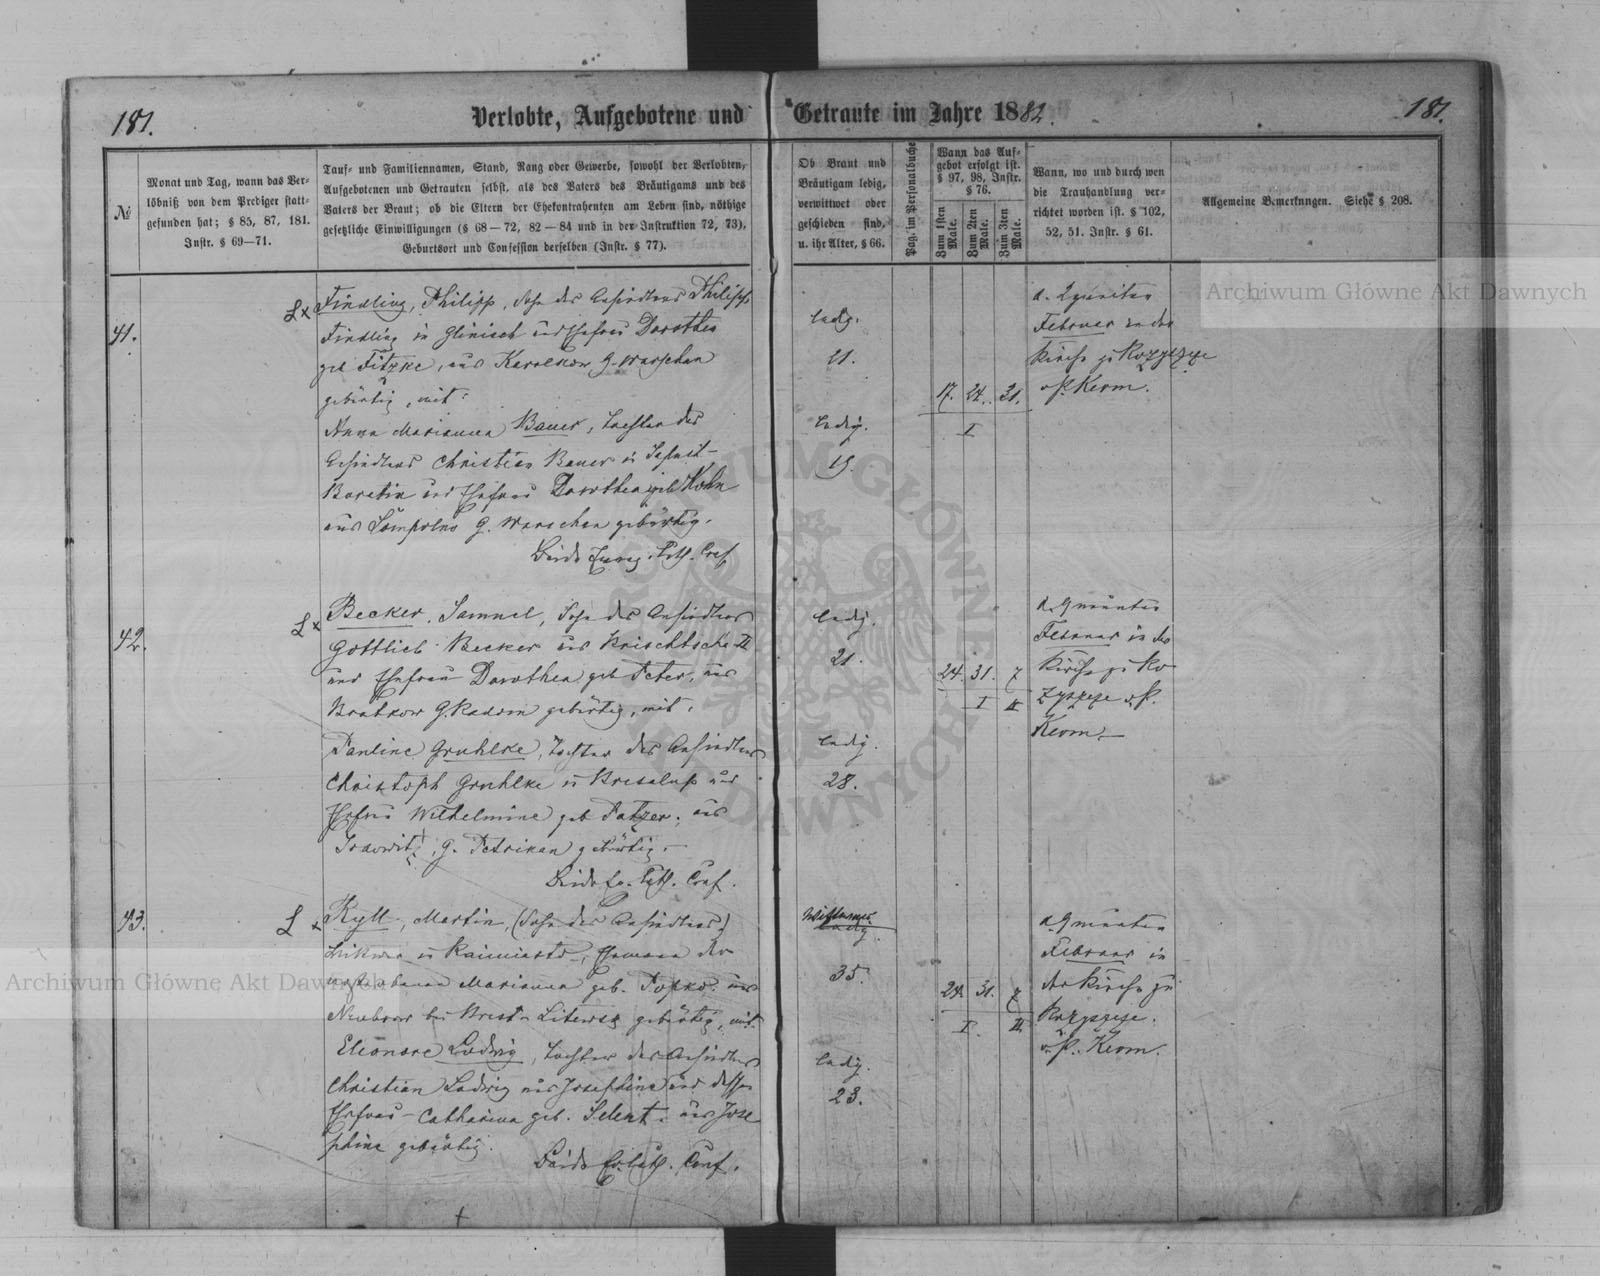 181.
Verlobte, Aufgebotene und Getraute im Jahre 1882.
181.
№
Monat und Tag, wann das Ver-
löbniß von dem Prediger statt-
gefunden hat; § 85, 87, 181.
Instr. § 69—71.
Tauf- und Familiennamen, Stand, Rang oder Gewerbe, sowohl der Verlobten,
Aufgebotenen und Getrauten selbst, als des Vaters des Bräutigams und des
Vaters der Braut; ob die Eltern der Ehekontrahenten am Leben sind, nöthige
gesetzliche Einwilligungen (§ 68—72, 82—84 und in der Instruktion 72, 73),
Geburtsort und Confession derselben (Instr. § 77).
Ob Braut und
Bräutigam ledig,
verwittwet oder
geschieden sind,
u. ihr Alter, § 66.
Pag. im Personalbuche
Wann das Auf-
gebot erfolgt ist.
§ 97, 98, Instr.
§ 76.
Zum 1sten Male.
Zum 2ten Male.
Zum 3ten Male.
Wann, wo und durch wen
die Trauhandlung ver-
richtet worden ist. § 102,
52, 51. Instr. § 61.
Allgemeine Bemerkungen. Siehe § 208.
41.
Findling, Philipp, Sohn des Ansiedlers Philipp
Findling in Glinisch und Ehefrau Dorothea
geb Fitzke, aus Karolkow G. Warschau
gebürtig, mit:
Anna Marianna Bauer, Tochter des
Ansiedlers Christian Bauer in
Boretin und Ehefrau Dorothea geb Kohn
aus Sompolno G. Warschau gebürtig.
Beide Evang. Luth. Conf.
ledig.
21.
ledig.
19.
17. 24. 31.
I
Februar in der
Kirche zu Rozyszcze
v. P. Kerm.
42.
Becker, Samuel, Sohn des Ansiedlers
Gottlieb Becker aus Krischtscha II
und Ehefrau Dorothea geb Peter, aus
Bratkow G. Radom gebürtig, mit:
Pauline Gruhlke, Tochter des Ansiedlers
Christoph Gruhlke in und
Ehefrau Wilhelmine geb Patzer, aus
G. Petrikau gebürtig.
Beide Ev. Luth. Conf.
ledig.
21.
ledig.
28.
24. 31. 7
I II
d. 9 neunten
Februar in der
Kirche zu Ro
zyszcze v. P.
Kerm.
43.
Kyll, Martin, (Sohn des Ansiedlers)
in Kaimiasto, Ehemann der
verstorbenen Marianna geb. Popko. aus
Neubrow bei Brest-Litewsk gebürtig, mit
Eleonore Ludwig, Tochter des Ansiedlers
Christian Ludwig aus Josephine und dessen
Ehefrau Catharina geb. Selent. aus Jose
phine gebürtig.
Beide Ev. Luth. Conf.
Wittwer.
ledig.
35.
ledig.
23.
24. 31. 7
I. II.
d. 9 neunten
Februar in
der Kirche zu
Rozyszcze.
v. P. Kerm.
Archiwum Główne Akt Dawnych
Archiwum Główne Akt Dawnych
ARCHIWUM GŁÓWNE AKT DAWNYCH